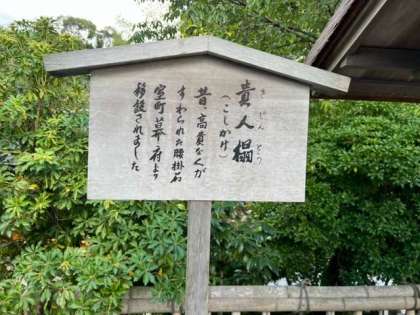 貴人榻
きじんとう
（こしかけ）
昔、高貴な人が
すわられた腰掛石
室町幕府より
移設されました